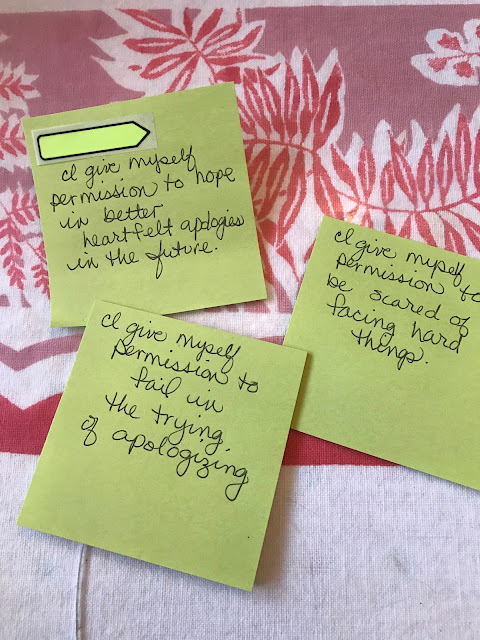 I give myself
permission to hope
in better
heartfelt apologies
in the future.
I give myself
permission to
be scared of
facing hard
things.
I give myself
permission to
fail in
the trying
of apologizing